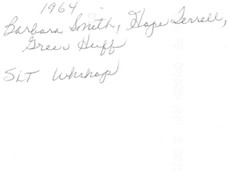 1964
Barbara Smith, Hope Terrell,
Green Huff
SLT Wkshop